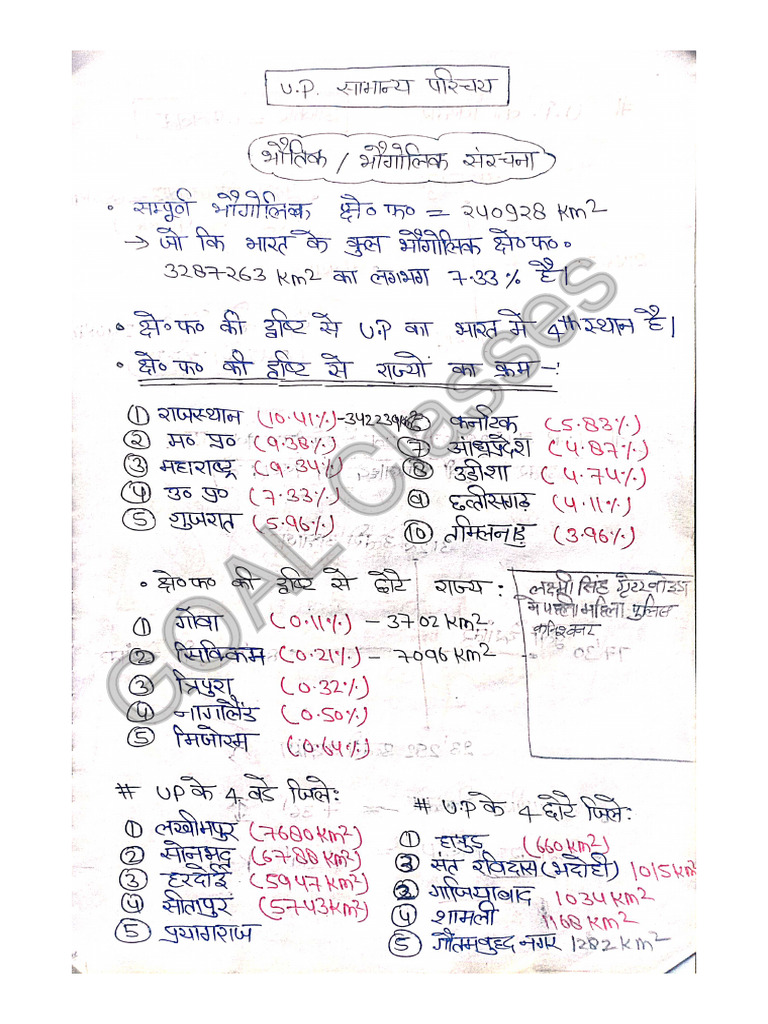 U.P. सामान्य परिचय
भौतिक / भौगोलिक संरचना
• सम्पूर्ण भौगोलिक क्षे० फ० = 240928 Km²
→ जो कि भारत के कुल भौगोलिक क्षे० फ०
3287263 Km² का लगभग 7.33 % है।
• क्षे० फ० की दृष्टि से U.P का भारत में 4th स्थान है।
• क्षे० फ० की दृष्टि से राज्यों का क्रम -:
① राजस्थान (10.41%) - 342239
② म० प्र० (9.38%)
③ महाराष्ट्र (9.34%)
④ उ० प्र० (7.33%)
⑤ गुजरात (5.96%)
⑥ कर्नाटक (5.83%)
⑦ आंध्रप्रदेश (4.87%)
⑧ उड़ीशा (4.74%)
⑨ छत्तीसगढ़ (4.11%)
⑩ तमिलनाडु (3.96%)
• क्षे० फ० की दृष्टि से छोटे राज्य :
① गोवा (0.11%) - 3702 Km²
② सिक्किम (0.21%) - 7096 Km²
③ त्रिपुरा (0.32%)
④ नागालैंड (0.50%)
⑤ मिजोरम (0.64%)
लक्ष्मी सिंह ग्रेटर नोएडा
पहली महिला पुलिस
कमिश्नर
# UP के 4 बडे जिले:
① लखीमपुर (7680 Km²)
② सोनभद्र (6788 Km²)
③ हरदोई (5947 Km²)
④ सीतापुर (5743 Km²)
⑤ प्रयागराज
# UP के 4 छोटे जिले:
① हापुड़ (660 Km²)
② संत रविदास (भदोही) 1015 Km²
③ गाजियाबाद 1034 Km²
④ शामली 1168 Km²
⑤ गौतमबुद्ध नगर 1282 Km²
GOAL Classes